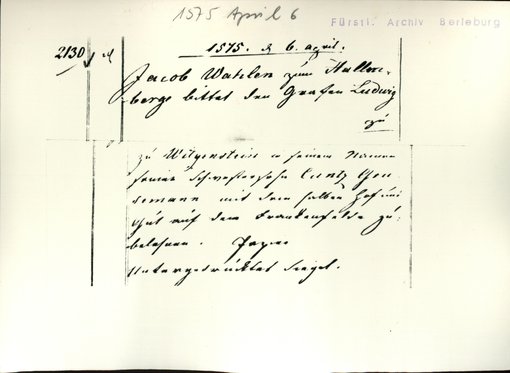 1575 April 6
Fürstl. Archiv Berleburg
2130
1575. d 6. april.
Jacob Watzlen zum Hallen-
berge bittet den Grafen Ludwig
zu
zu Witgenstein in seinem Namen
seiner Schwestersohn Cuntz
mit dem halben Hof und
Gut auf dem Frankenfelde zu
belehnen. Papier
Untergedrücktes Siegel.